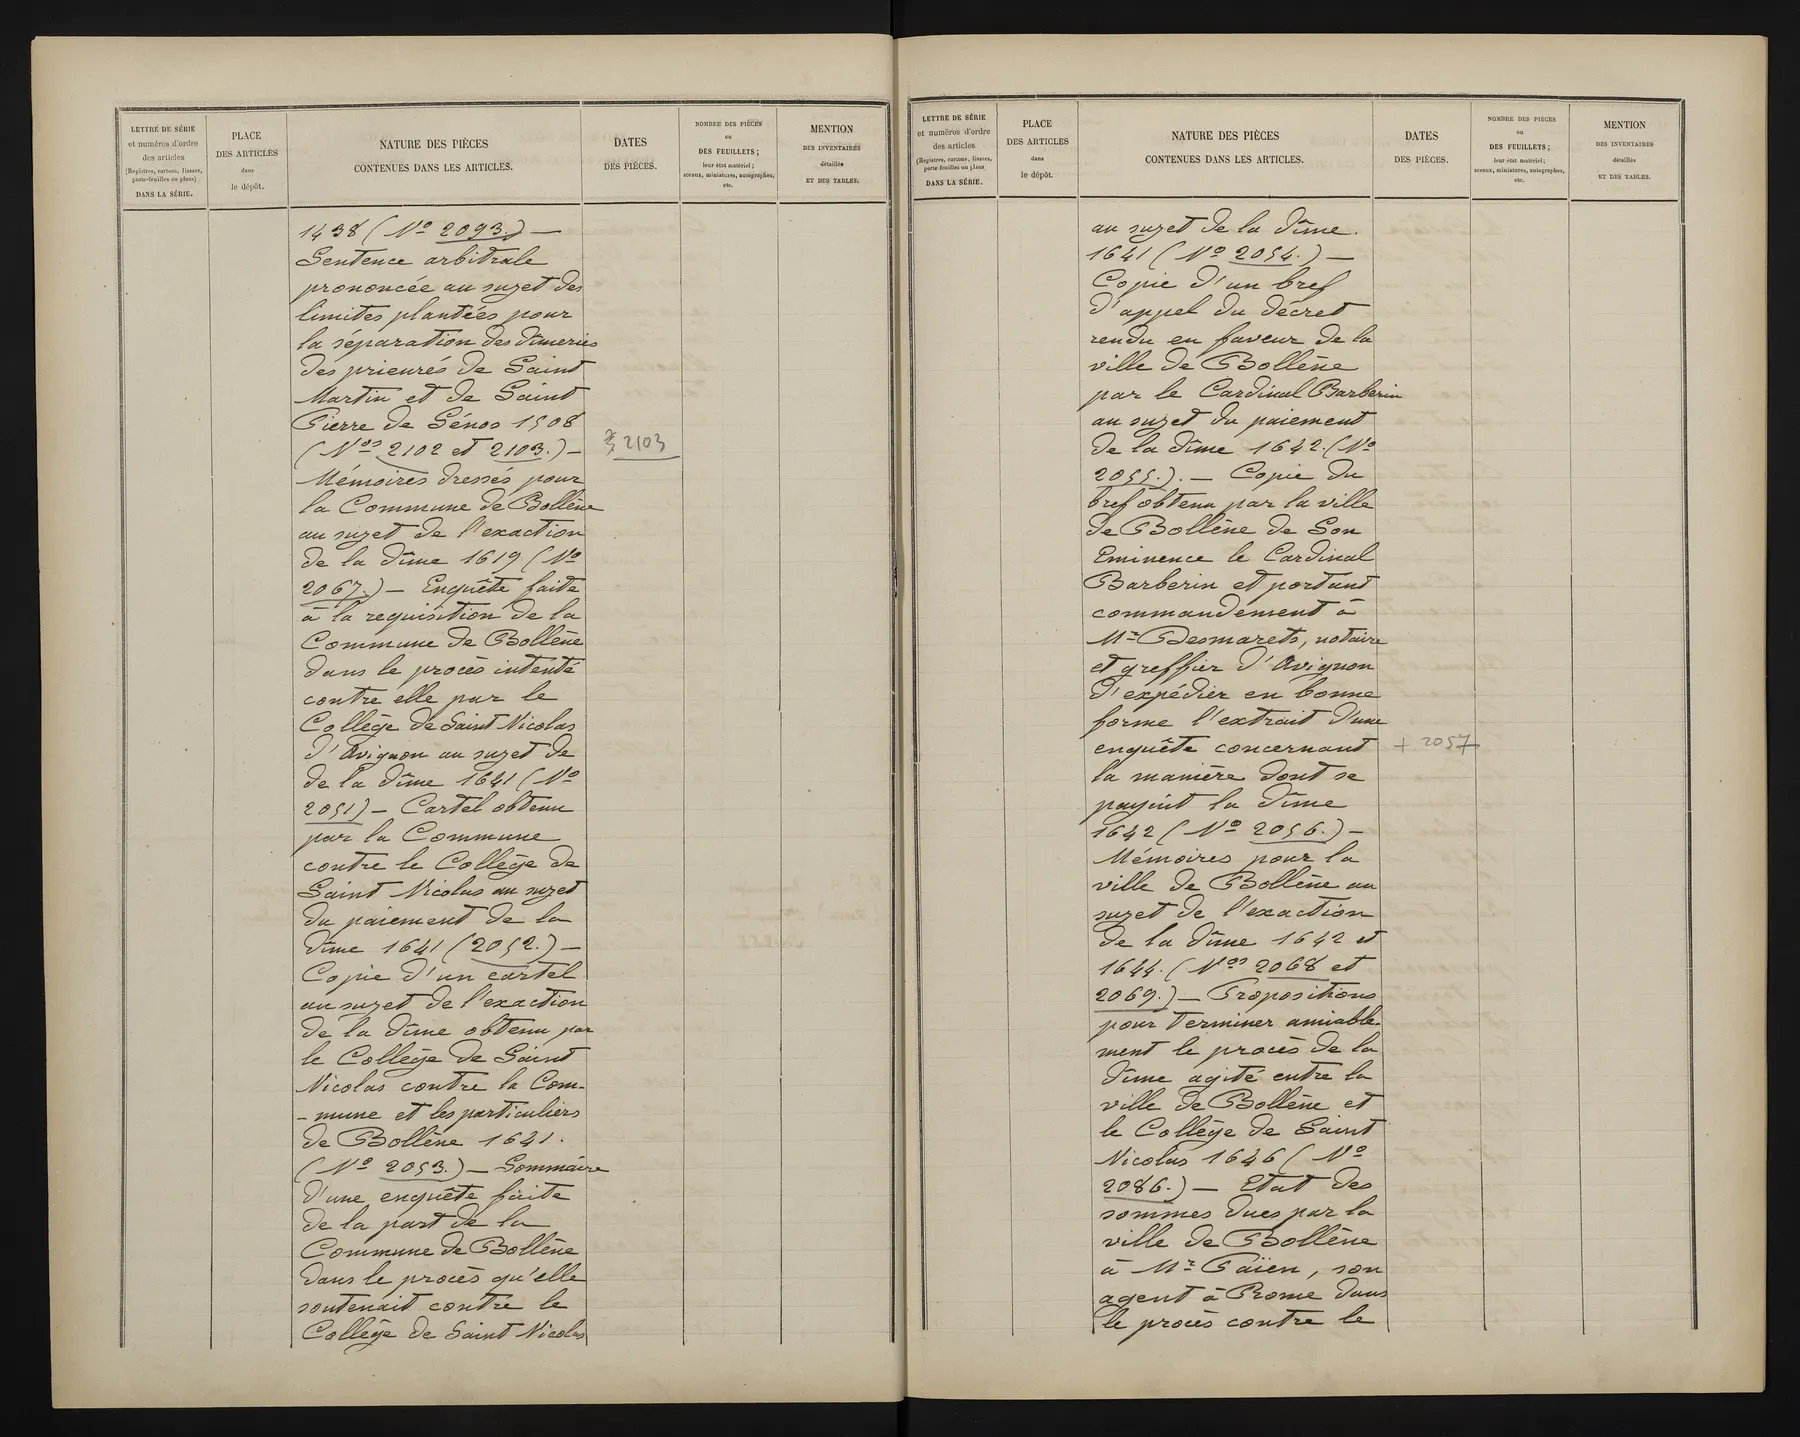 LETTRE DE SÉRIE
et numéros d'ordre
des articles
(Registres, cartons, liasses,
porte-feuilles ou plans)
DANS LA SÉRIE.
PLACE
DES ARTICLES
dans
le dépôt.
NATURE DES PIÈCES
CONTENUES DANS LES ARTICLES.
DATES
DES PIÈCES.
NOMBRE DES PIÈCES
ou
DES FEUILLETS;
leur état matériel;
sceaux, miniatures, autographes,
etc.
MENTION
DES INVENTAIRES
détaillés
ET DES TABLES.
1438 (No 2093.) —
Sentence arbitrale
prononcée au sujet des
limites plantées pour
la séparation des dîmeries
des prieurés de Saint
Martin et de Saint
Pierre de Sénos 1508
(Nos 2102 et 2103.) —
2103
Mémoires dressés pour
la Commune de Bollène
au sujet de l'exaction
de la dîme 1619 (No
2067.) — Enquête faite
à la requisition de la
Commune de Bollène
dans le procès intenté
contre elle par le
Collège de Saint Nicolas
d'Avignon au sujet de
de la dîme 1641 (No
2051) — Cartel obtenu
par la Commune
contre le Collège de
Saint Nicolas au sujet
du paiement de la
dîme 1641 (2052.) —
Copie d'un cartel
au sujet de l'exaction
de la dîme obtenu par
le Collège de Saint
Nicolas contre la Com-
-mune et les particuliers
de Bollène 1641.
(No 2053.) — Sommaire
d'une enquête faite
de la part de la
Commune de Bollène
dans le procès qu'elle
soutenait contre le
Collège de Saint Nicolas
LETTRE DE SÉRIE
et numéros d'ordre
des articles
(Registres, cartons, liasses,
porte-feuilles ou plans
DANS LA SÉRIE.
PLACE
DES ARTICLES
dans
le dépôt.
NATURE DES PIÈCES
CONTENUES DANS LES ARTICLES.
DATES
DES PIÈCES.
NOMBRE DES PIÈCES
ou
DES FEUILLETS;
leur état matériel;
sceaux, miniatures, autographes,
etc.
MENTION
DES INVENTAIRES
détaillés
ET DES TABLES.
au sujet de la dîme.
1641 (No 2054.) —
Copie d'un bref
d'appel du décret
rendu en faveur de la
ville de Bollène
par le Cardinal Barberin
au sujet du paiement
de la dîme 1642. (No
2055.). — Copie du
bref obtenu par la ville
de Bollène de Son
Eminence le Cardinal
Barberin et portant
commandement à
Mr Desmarets, notaire
et greffier d'Avignon
d'expédier en bonne
forme l'extrait d'une
enquête concernant
+ 2057
la manière dont se
payait la dîme
1642 (No 2056.) —
Mémoires pour la
ville de Bollène au
sujet de l'exaction
de la dîme 1642 et
1644. (Nos 2068 et
2069.) — Propositions
pour terminer amiable-
ment le procès de la
dîme agité entre la
ville de Bollène et
le Collège de Saint
Nicolas 1646 (No
2086.) — Etat des
sommes dues par la
ville de Bollène
à Mr Païen, son
agent à Rome dans
le procès contre le